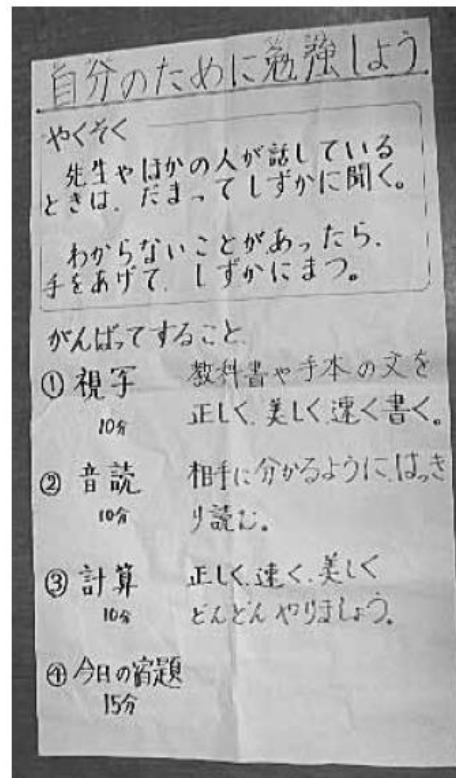 自分のために勉強しよう
やくそく
先生やほかの人が話している
ときは、だまってしずかに聞く。
わからないことがあったら、
手をあげて、しずかにまつ。
がんばってすること
① 視写 教科書や手本の文を
10分 正しく、美しく、速く書く。
② 音読 相手に分かるように、はっき
10分 り読む。
③ 計算 正しく、速く、美しく
10分 どんどんやりましょう。
④ 今日の宿題
15分